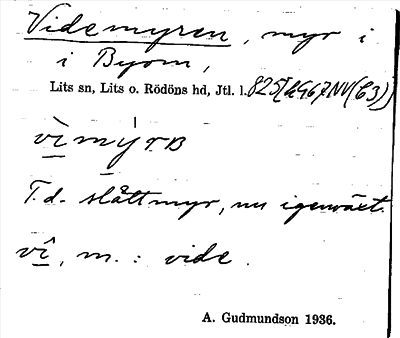 Videmyren, myr i
i Byom,
Lits sn, Lits o. Rödöns hd, Jtl. l. 825[ 67NV(C3)
vìmýrʙ
T.d. slåttmyr, nu igenväxt.
vî, m. : vide.
A. Gudmundson 1936.